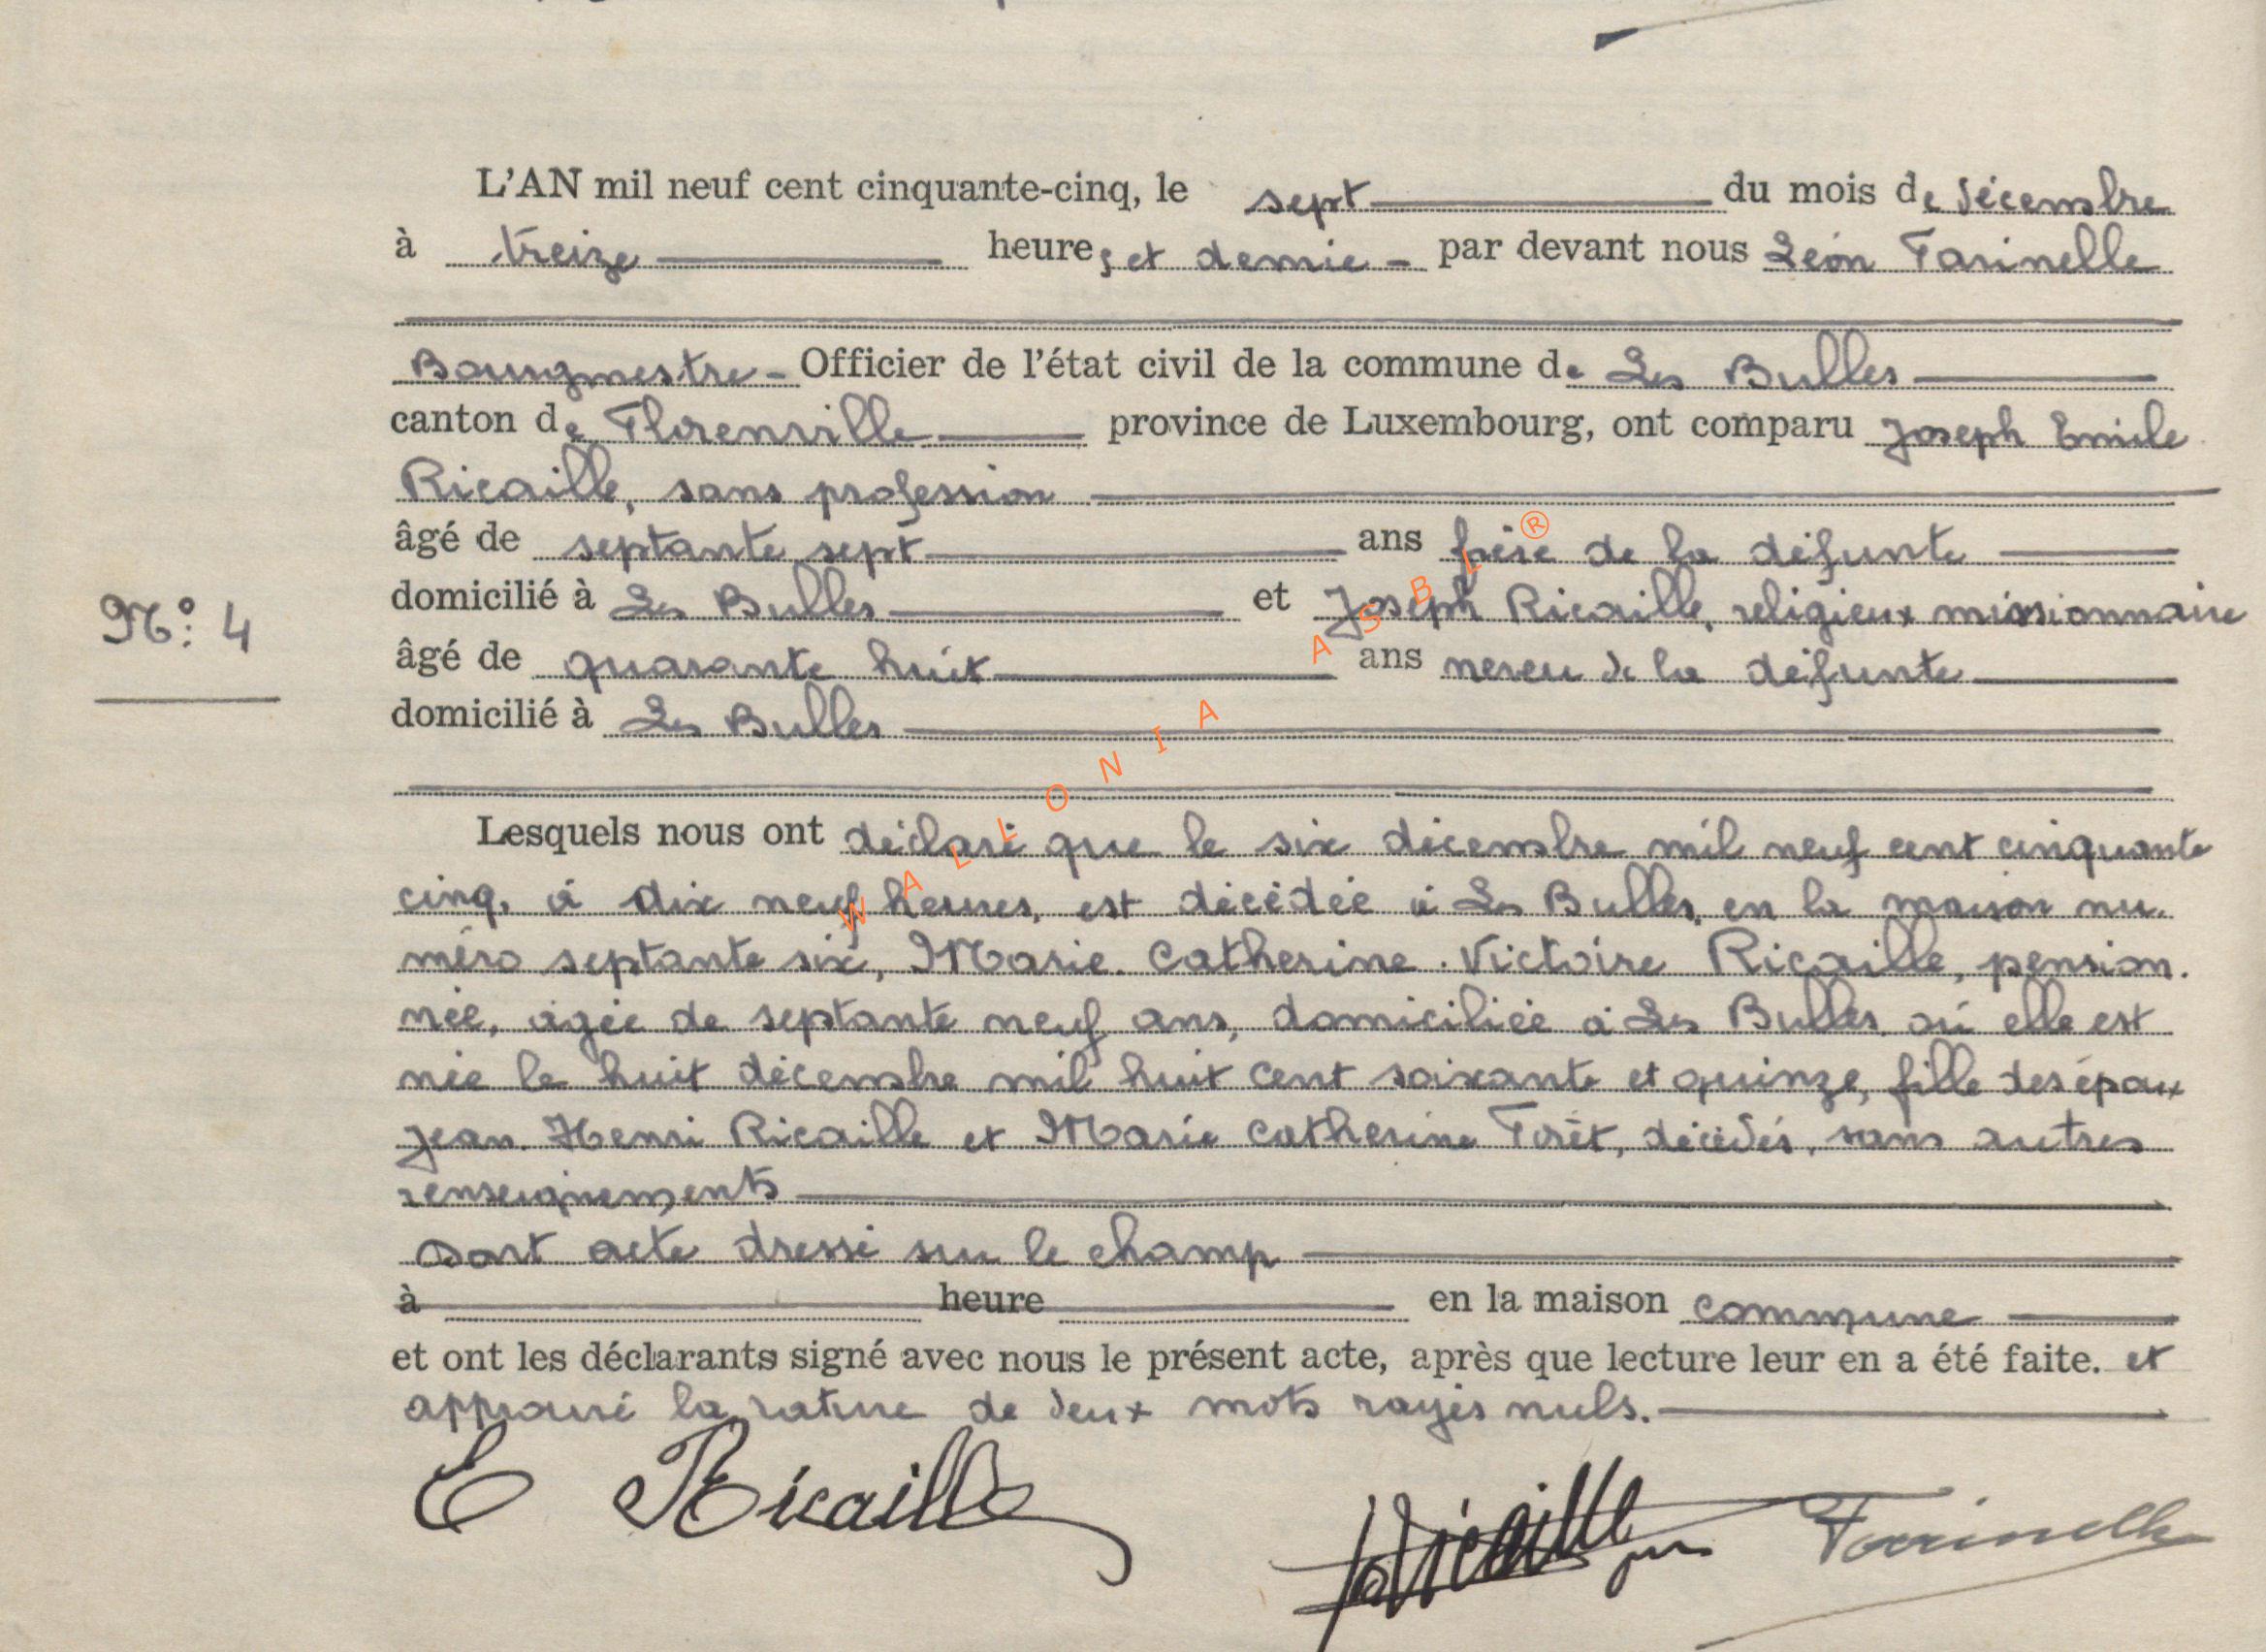 L'AN mil neuf cent cinquante-cinq, le sept du mois de décembre
à treize heures et demie - par devant nous Léon Farinelle
Bourgmestre - Officier de l'état civil de la commune de Les Bulles
canton de Florenville province de Luxembourg, ont comparu Joseph Emile
Ricaille, sans profession
âgé de septante sept ans frère de la défunte
domicilié à Les Bulles et Joseph Ricaille, religieux missionnaire
N°: 4
âgé de quarante huit ans neveu de la défunte
domicilié à Les Bulles
Lesquels nous ont déclaré que le six décembre mil neuf cent cinquante
cinq, à dix neuf heures, est décédée à Les Bulles, en la maison nu-
méro septante six, Marie. Catherine. Victoire Ricaille, pension-
née, âgée de septante neuf ans, domiciliée à Les Bulles où elle est
née le huit décembre mil huit cent soixante et quinze, fille des époux
Jean. Henri Ricaille et Marie Catherine Forêt, décédés, sans autres
renseignements
Dont acte dressé sur le champ
à heure en la maison commune
et ont les déclarants signé avec nous le présent acte, après que lecture leur en a été faite. et
approuvé la rature de deux mots rayés nuls.
E Ricaille Ricaille Farinelle
WALLONIA ASBL ®